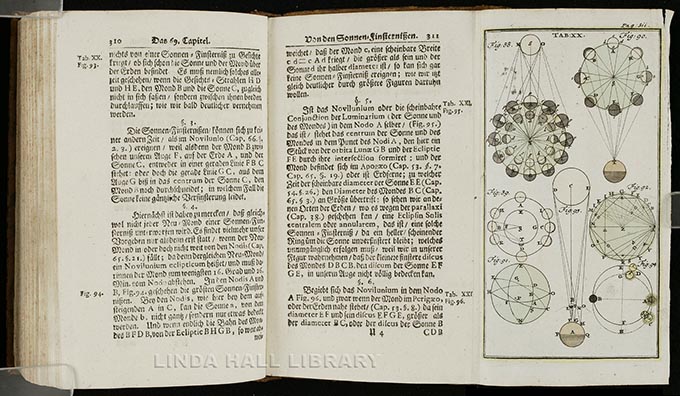 310 Das 69. Capitel.
Tab. XX.
Fig. 93.
nichts von einer Sonnen-Finsterniß zu Gesichte
kriegt, ob sich schon die Sonne und der Mond über
der Erden befindet. Es muß nemlich solches alle-
zeit geschehen, wenn die Gesichts-Strahlen H D
und H E, den Mond B und die Sonne C, zugleich
nicht in sich fassen, sondern zwischen ihnen beeden
durchlauffen; wie wir bald deutlicher vernehmen
werden.
§. 3.
Die Sonnen-Finsternußen können sich zu kei-
ner andern Zeit, als im Novilunio (Cap. 66. §.
2. 2.) ereignen, weil alsdenn der Mond B zwi-
schen unserm Auge F, auf der Erde A, und der
Sonne C, entweder in einer geraden Linie F B C
stehet, oder doch die gerade Linie G C, aus dem
Auge G biß in das centrum der Sonne C, den
Mond B noch durchschneidet; in welchem Fall die
Sonne keine gäntzliche Verfinsterung leidet.
§. 4.
Hiernächst ist dabey zu mercken, daß gleich-
wol nicht jeder Neu-Mond einer Sonnen-Fin-
sterniß unterworffen wird. Es findet vielmehr unser
Vorgeben nur alsdenn erst statt, wenn der Neu-
Mond in oder doch nicht weit von dem Nodis (Cap.
65. §. 21.) fällt; da denn dergleichen Neu-Mond,
ein Novilunium eclipticum heißet, und muß da-
rinnen der Mond zum wenigsten 16. Grad und 21.
Min. vom Nodo abstehen. In den Nodis A und
Fig. 94.
B, Fig. 94. geschehen die größten Sonnen-Finster-
nüßen. Bey den Nodis, wie hier bey dem auf-
steigenden A in C, kan die Sonne a, von dem
Monde b, nicht gantz, sondern nur etwas bedeckt
werden. Und wenn endlich die Bahn des Mon-
des B F D B, von der Ecliptic B H G B, so weit ab-
wei
Von den Sonnen-Finsternißen. 311
weichet, daß der Mond c, eine scheinbare Breite
c d = c A d kriegt, die größer als sein und der
Sonne d ihr halber diameter ist, so kan sich gar
keine Sonnen-Finsterniß ereignen; wie wir itzt
gleich deutlicher durch größere Figuren darthun
wollen.
§. 5.
Tab. XXI.
Fig. 95.
Ist das Novilunium oder die scheinbahre
Conjunction der Luminarium (der Sonne und
des Mondes) in dem Nodo A selber, (Fig. 95.)
das ist, stehet das centrum der Sonne und des
Mondes in dem Punct des Nodi A, den hier ein
Stück von der orbita Lunæ G B und der Ecliptic
F E durch ihre intersection formiret; und der
Mond befindet sich im Apogæo (Cap. 53. §. 7.
Cap. 65. §. 19.) oder ist Erdferne; zu welcher
Zeit der scheinbare diameter der Sonne E E (Cap.
54. §. 26.) den Diameter des Mondes B C (Cap.
65. § 3.) an Größe übertrift: so sehen wir an de-
nen Orten der Erden, wo es wegen der parallaxi
(Cap. 38.) geschehen kan, eine Eclipsin Solis
centralem oder annularem, das ist, eine solche
Sonnen-Finsterniß, da ein heller, scheinender
Ring um die Sonne unverfinstert bleibt; welches
unumgänglich erfolgen muß, weil wir in unserer
Figur wahrnehmen, daß der kleinere finstere discus
des Mondes D B C B, den discum der Sonne E F
G E, in unserm Auge nicht völlig bedecken kan.
§. 6.
Tab. XXI
Fig. 96.
Begiebt sich das Novilunium in dem Nodo
A Fig. 96. und zwar wenn der Mond im Perigæo,
oder der Erden nahe stehet, (Cap. 53. §. 8.) da sein
diameter E F und sein discus E F G E, größer als
der diameter B C, oder der discus der Sonne B
U 4 C D B
Pag. 311.
TAB. XX.
Fig. 88.
Fig. 90.
Fig. 89.
Fig. 93.
Fig. 92.
Fig. 91.
Fig. 94
LINDA HALL LIBRARY